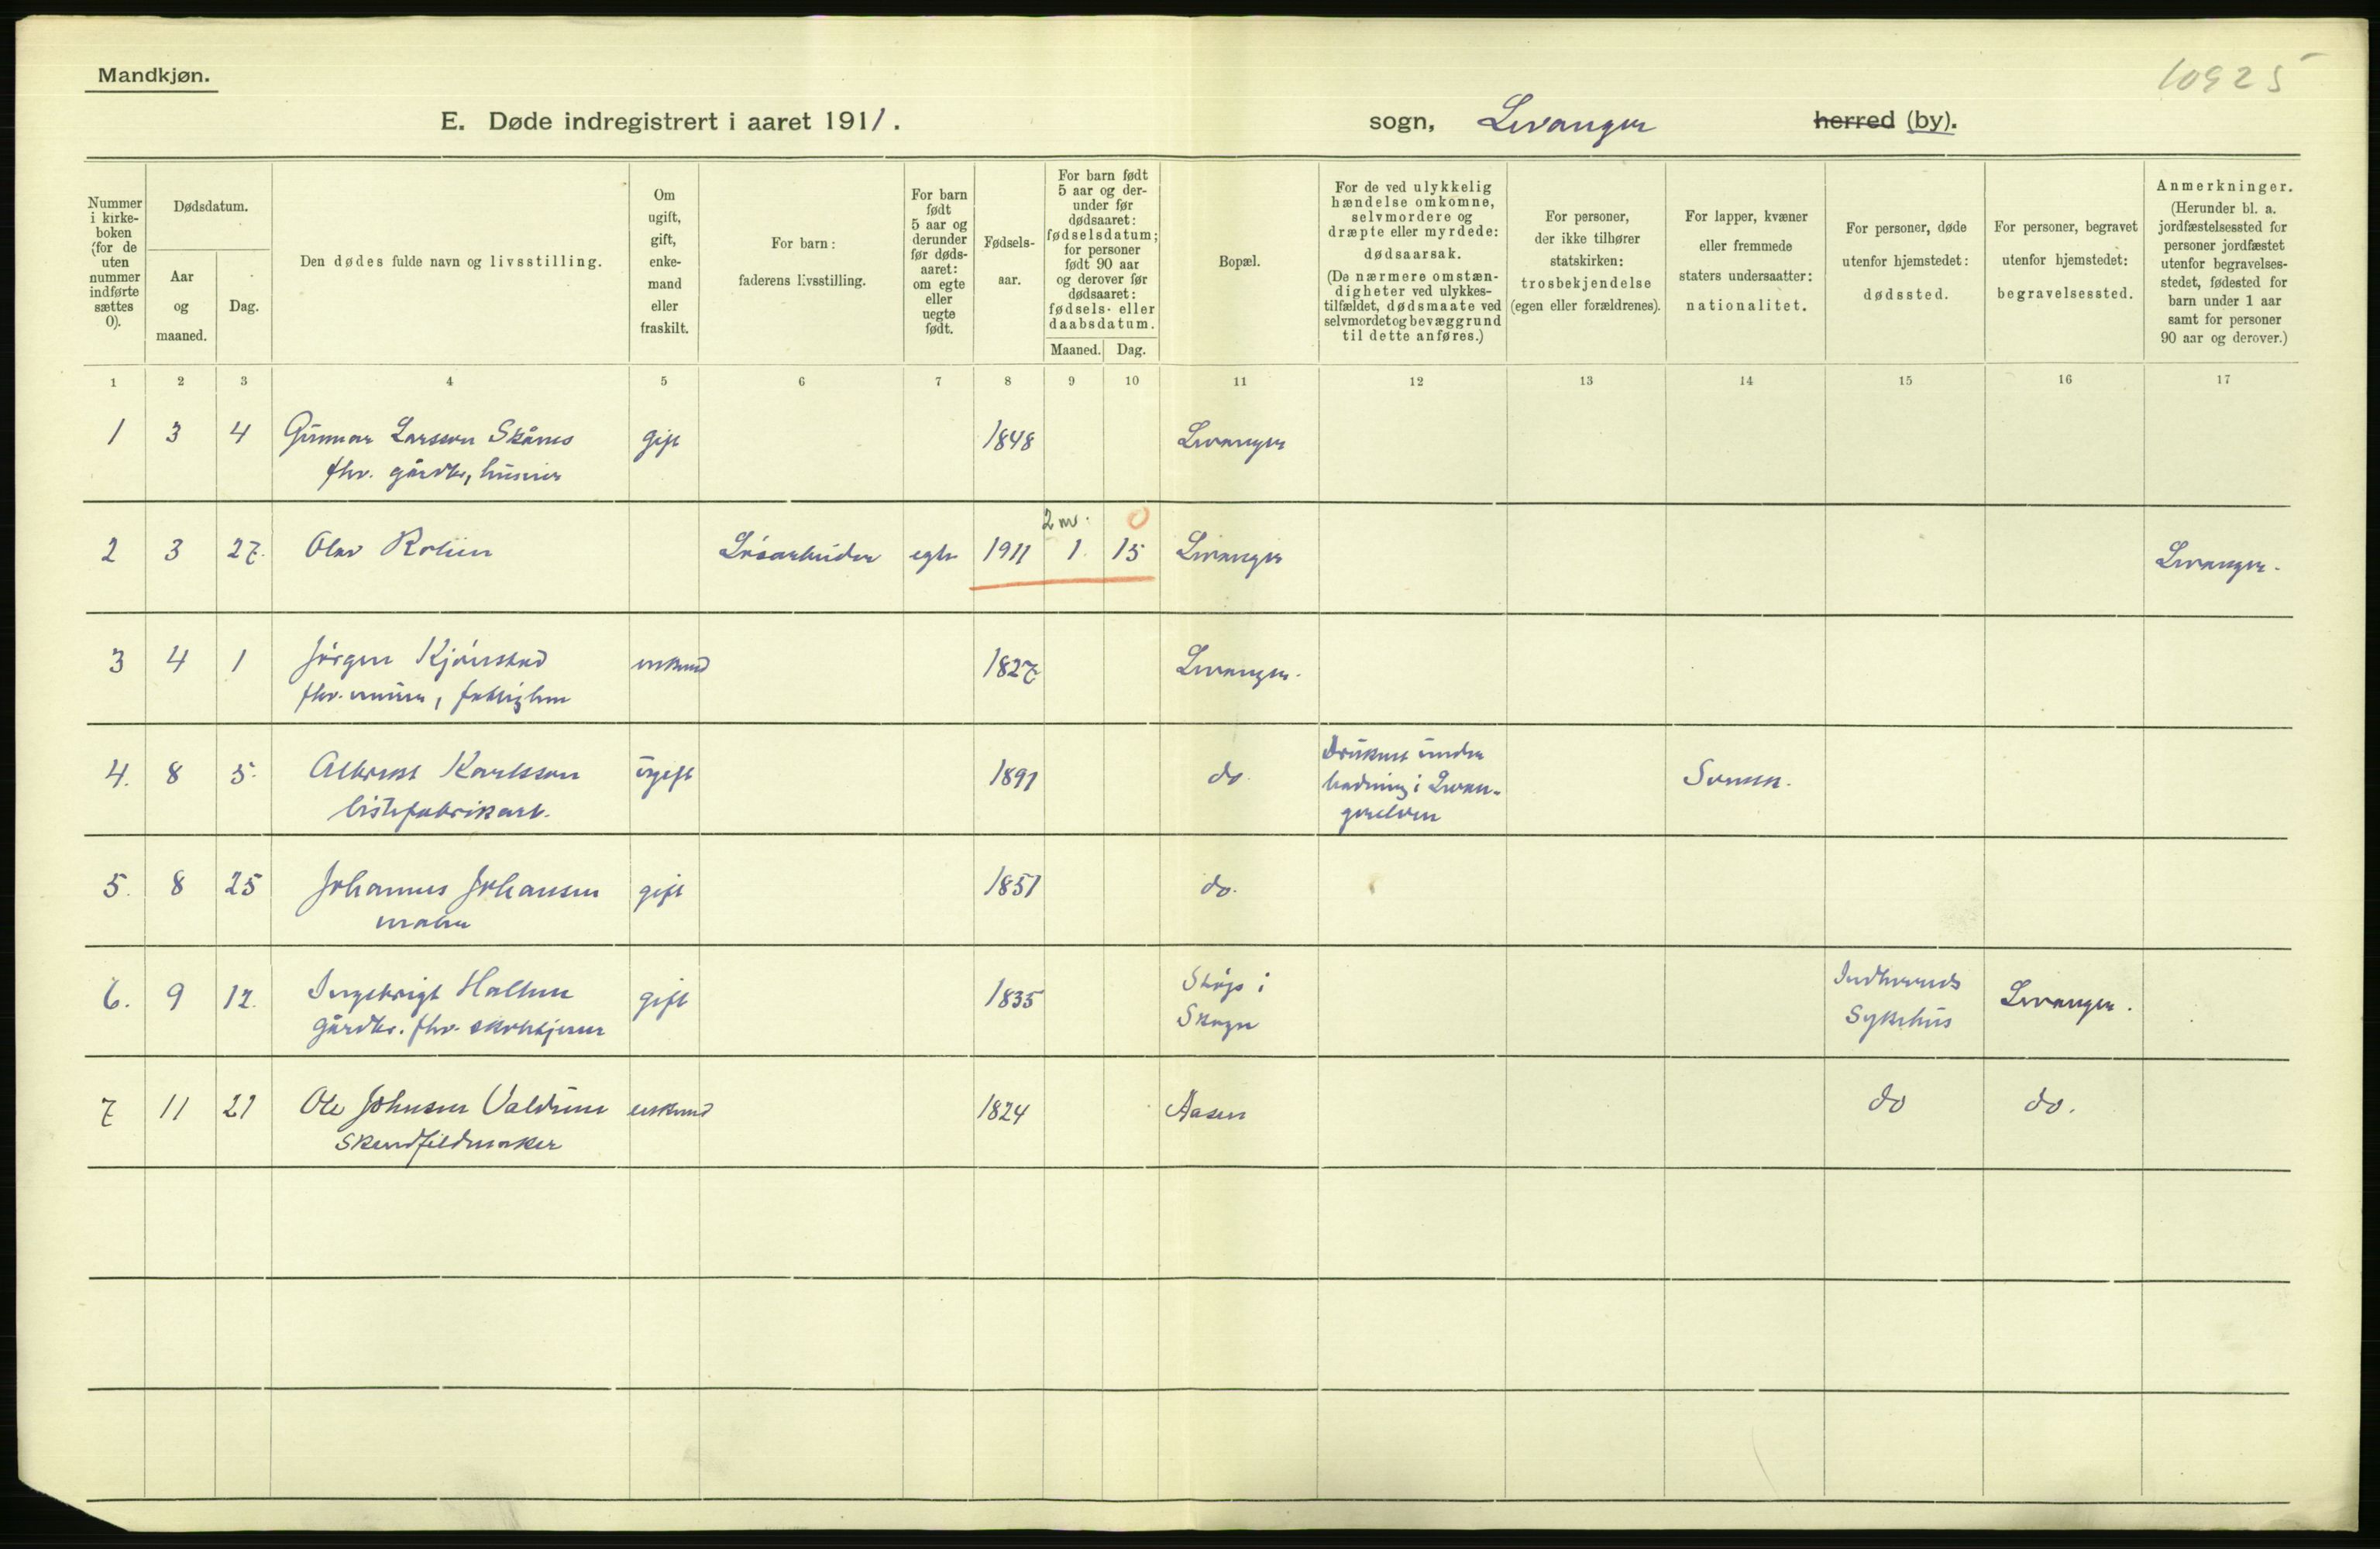 Mandkjøn.
10925
E. Døde indregistrert i aaret 1911.
sogn, Levanger herred (by).
Nummer i kirke-boken (for de uten nummer indførte sættes 0).
Dødsdatum.
Aar og maaned.
Dag.
Den dødes fulde navn og livsstilling.
Om ugift, gift, enke-mand eller fraskilt.
For barn: faderens livsstilling.
For barn født 5 aar og derunder før døds-aaret: om egte eller uegte født.
Fødsels-aar.
For barn født 5 aar og der-under før dødsaaret: fødselsdatum; for personer født 90 aar og derover før dødsaaret: fødsels- eller daabsdatum.
Maaned. Dag.
Bopæl.
For de ved ulykkelig hændelse omkomne, selvmordere og dræpte eller myrdede: dødsaarsak.
(De nærmere omstæn-digheter ved ulykkes-tilfældet, dødsmaate ved selvmordet og bevæggrund til dette anføres.)
For personer, der ikke tilhører statskirken: trosbekjendelse (egen eller forældrenes).
For lapper, kvæner eller fremmede staters undersaatter: nationalitet.
For personer, døde utenfor hjemstedet: dødssted.
For personer, begravet utenfor hjemstedet: begravelsessted.
Anmerkninger.
(Herunder bl. a. jordfæstelsessted for personer jordfæstet utenfor begravelses-stedet, fødested for barn under 1 aar samt for personer 90 aar og derover.)
1 2 3 4 5 6 7 8 9 10 11 12 13 14 15 16 17
1 3 4 Gunnar Larssen Skånes gift 1848 Levanger
fhv. gårdbr,
2 m. 0
2 3 27. Olav Rolien Løsarbeider egte 1911 1. 15 Levanger Levanger.
3 4 1 Jørgen Kjønstad enkemd 1827 Levanger.
fhv. murer, fattiglem
4. 8 5. Albrekt Karlsson ugift 1891 do Druknet under Svensk.
listefabrikarb. badning i Levan-
gerelven
5. 8 25 Johannes Johansen gift 1851 do.
maler
6. 9 12. Ingebrigt Halsen gift 1835 Skogn Indherreds Levanger.
gårdbr. fhv. Sykehus
7 11 21 Ole Johnsen enkemd 1824 Aasen do do.
Skindfeldmaker